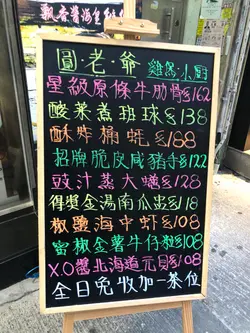 飄香醬滷
圓·老·爺 雞煲小廚
星級原條牛肋骨$162
酸菜煮班球$138
酥炸桶蚝$188
招牌脆皮咸豬手$122
豉汁蒸大鱔$128
得獎金湯南瓜虫$118
椒鹽海中蝦$108
蜜椒金薯牛仔粒$108
X.O醬北海道元貝$108
全日免收加一茶位